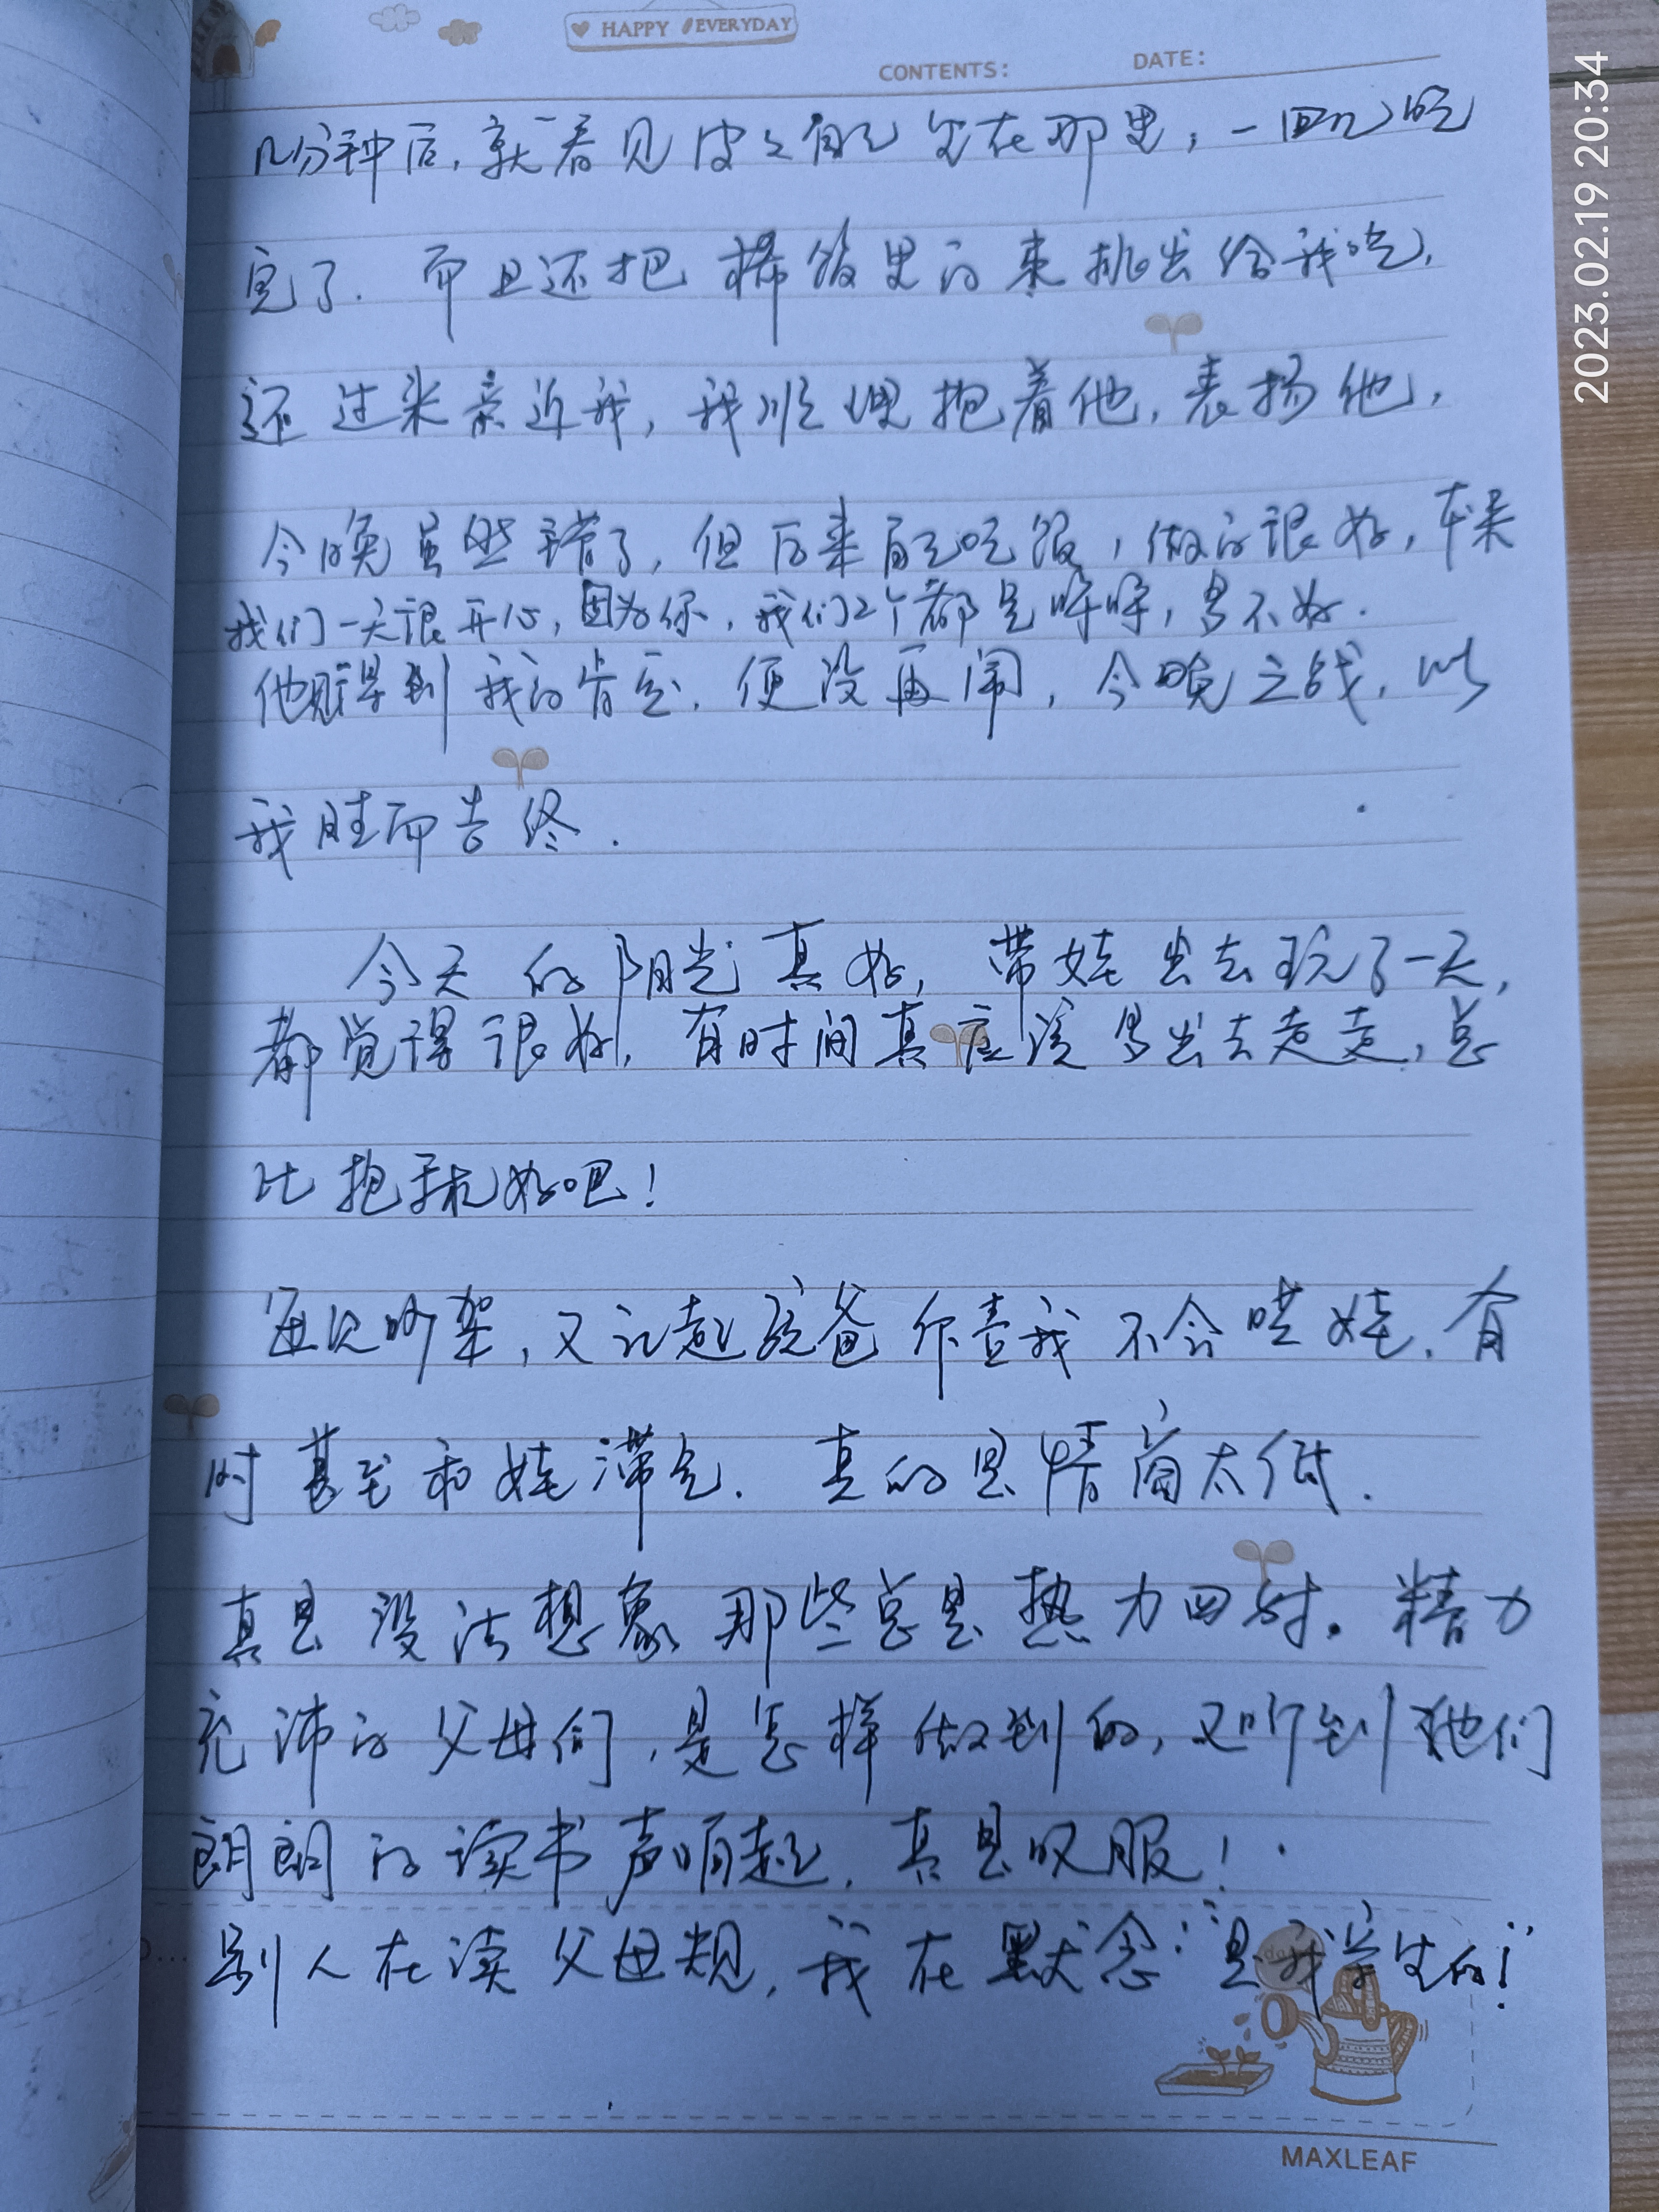 HAPPY EVERYDAY
CONTENTS: DATE:
几分钟后,就看见皮皮自己坐在那里,一口口吃
完了.而且还把稀饭里的枣挑出给我吃,
还过来亲近我,我顺理抱着他,表扬他,
今晚虽然错了,但后来自己吃饭,做的很好,本来
我们一天很开心,因为你,我们2个都是哼哼,多不好.
他得到我的肯定,便没再闹,今晚之战,以
我胜而告终.
今天的阳光真好,带娃出去玩了一天,
都觉得很好,有时间真应该多出去走走,总
比抱手机好吧!
每次吵架,又记起孩爸作责我不会哄娃.有
时甚至和娃滞气.真的是情商太低.
真是没法想象那些总是热力四射.精力
充沛的父母们,是怎样做到的,又听到他们
朗朗的读书声响起,真是叹服!
别人在读父母规,我在默念:"是我学生的!"
MAXLEAF
2023.02.19 20:34